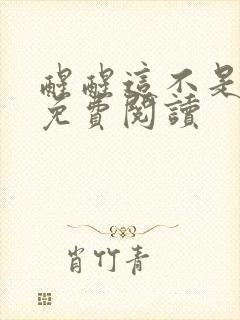 醒醒這不是
免費閱讀
肖竹青